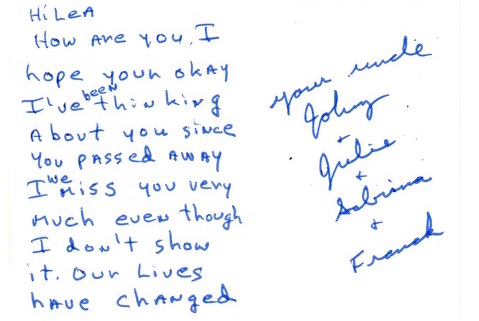 Hi Lea
How are you, I
hope your okay
I've been thinking
About you since
you passed away
I we miss you very
much even though
I don't show
it. Our Lives
have changed
your uncle
Johny
+
Julie
+
Sabrina
+
Franck